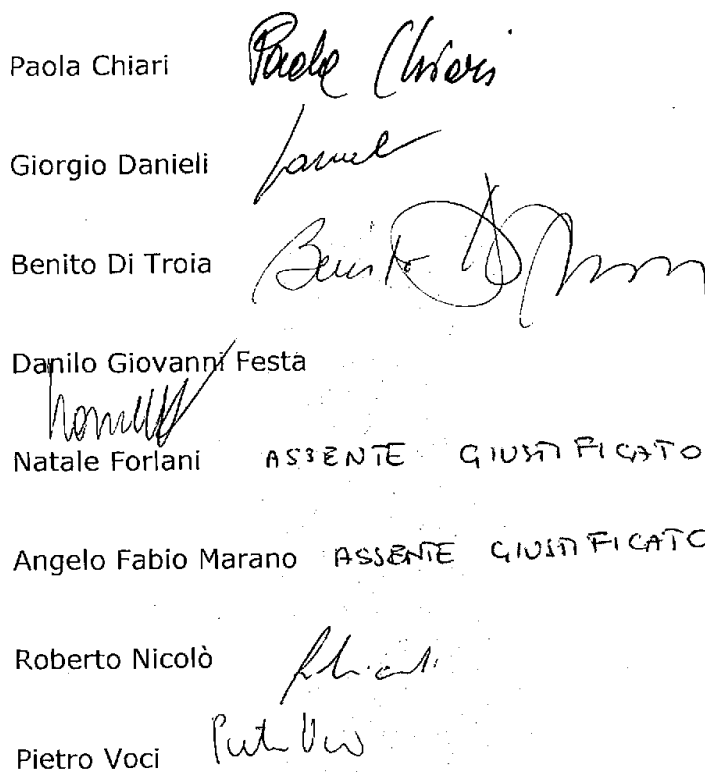 Paola Chiari Paola Chiari
Giorgio Danieli
Benito Di Troia Benito
Danilo Giovanni Festa
Natale Forlani ASSENTE GIUSTIFICATO
Angelo Fabio Marano ASSENTE GIUSTIFICATO
Roberto Nicolò
Pietro Voci